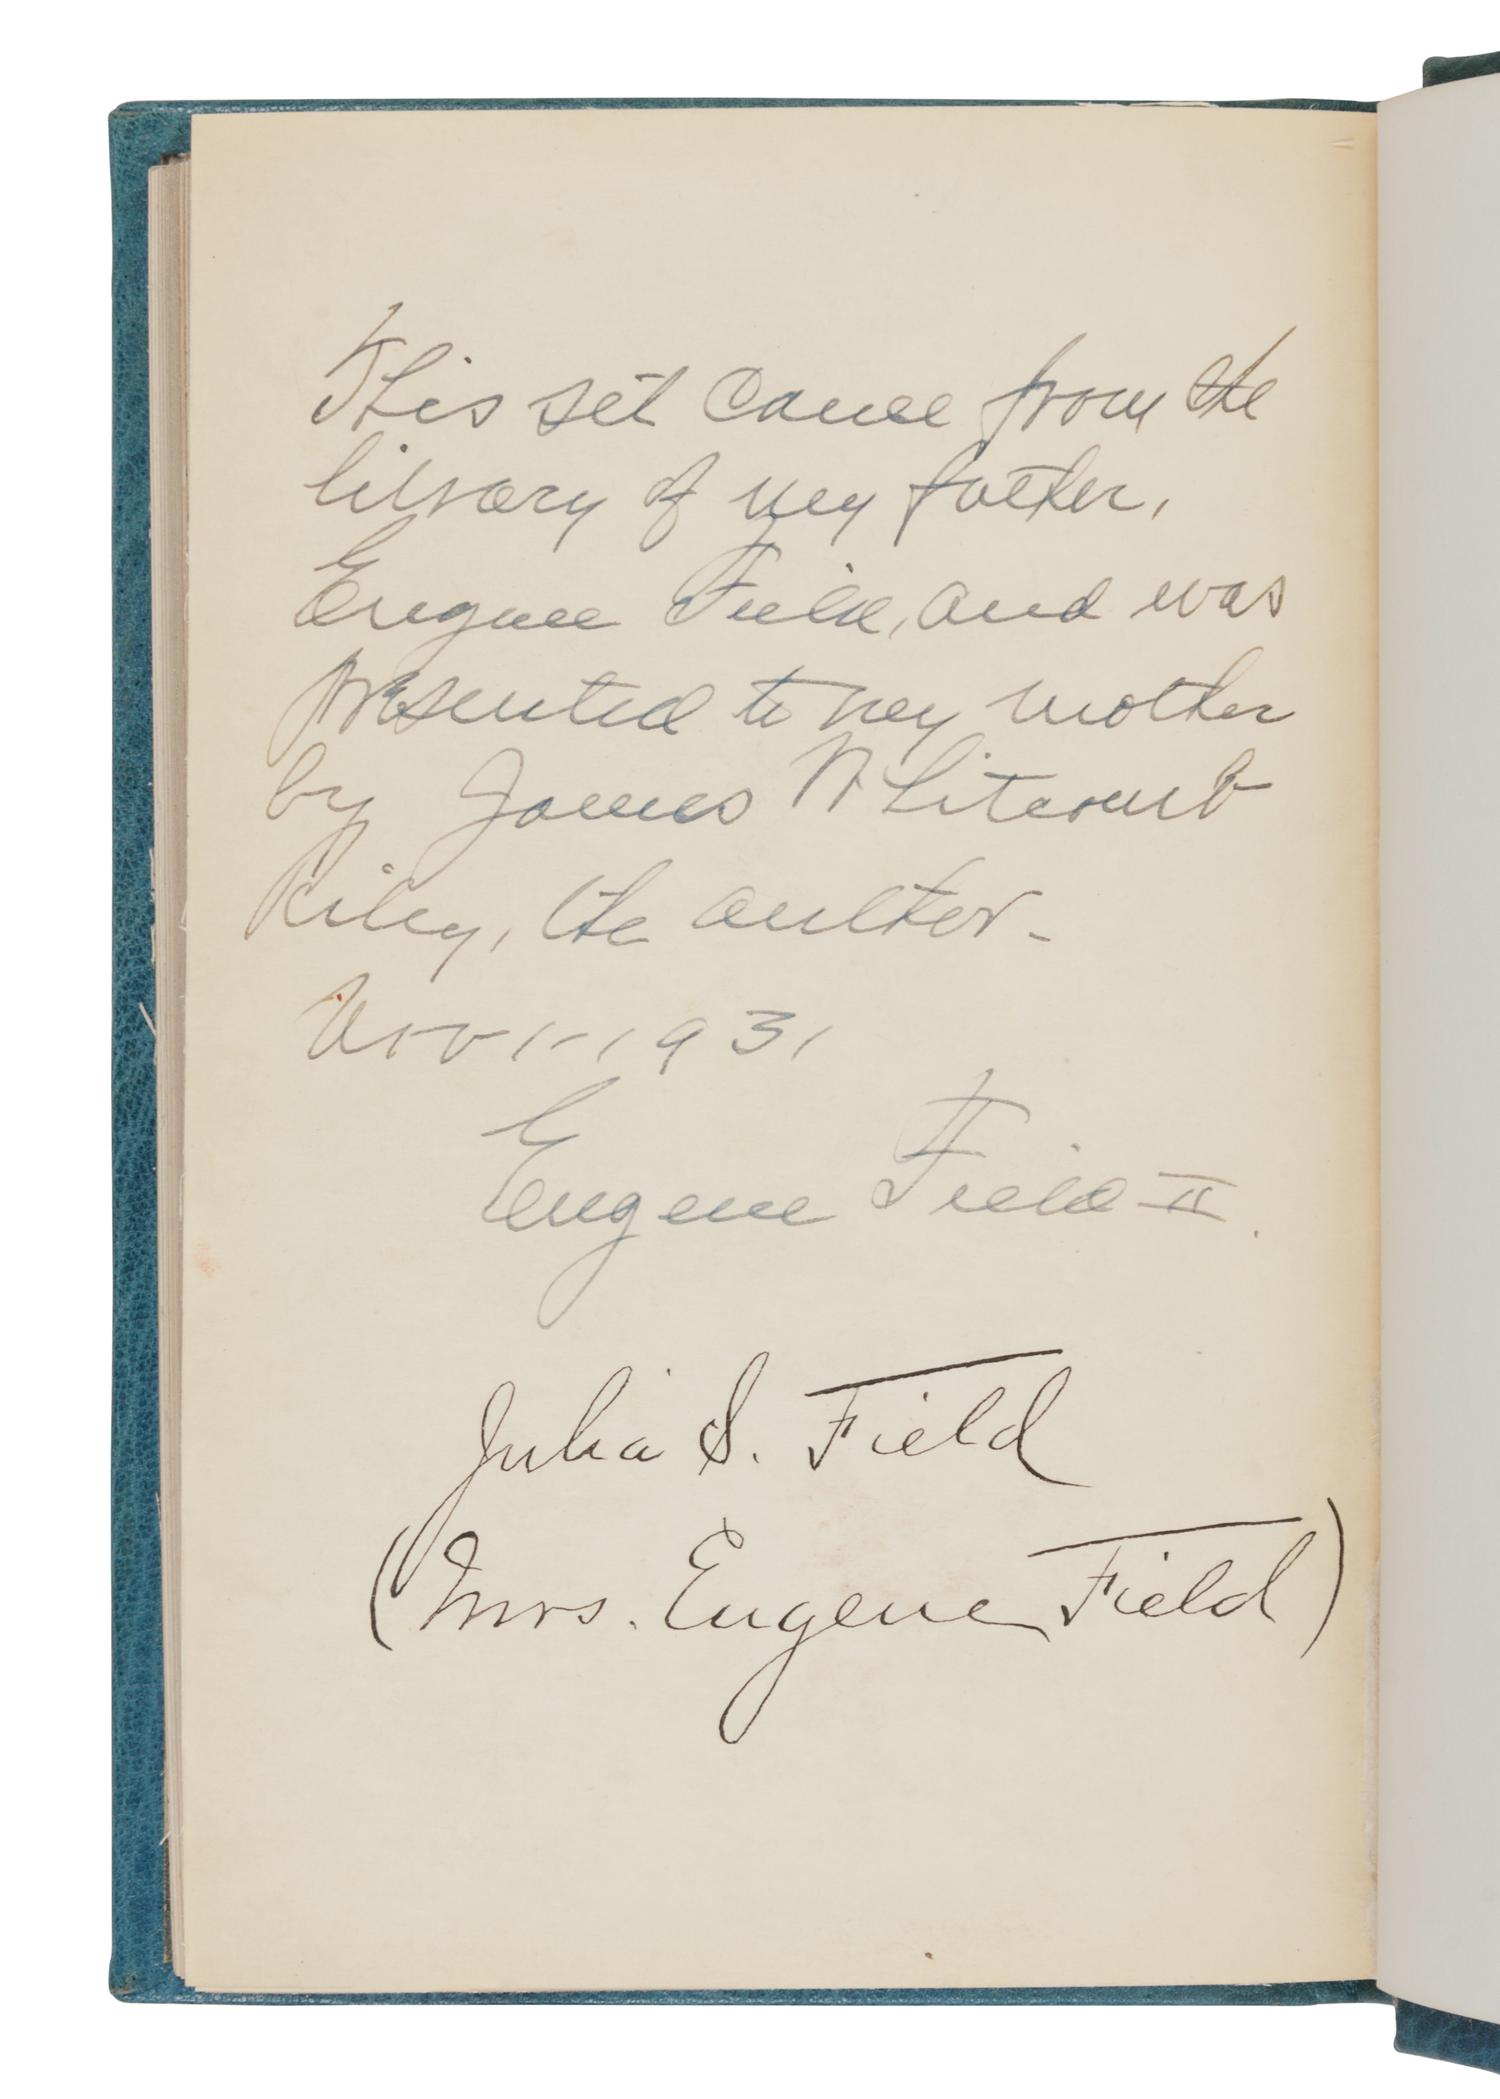 This set came from the
library of my father,
Eugene Field, and was
presented to my mother
by James Whitcomb
Riley, the author-
Nov-1-1931
Eugene Field II.
Julia S. Field
(Mrs. Eugene Field)